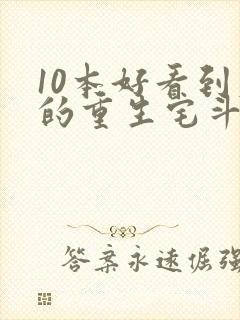 10本好看到
的重生宅斗
答案永远倔强